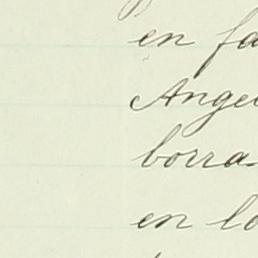 en fa
Ange
borra-
en lo